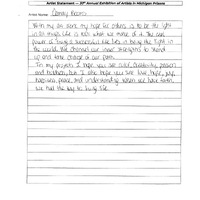 Artist Statement — 20th Annual Exhibition of Artists in Michigan Prisons
Artist Name:
With my art work my hope for others is to be the light
in all things. Life is only what we make of it. The real
power of living a successful life lies in being the light in
the world. We channel our inner strengths and stand
up and take charge of our path.
In my projects I hope you see color, creativity, passion
and boldness, but I also hope you see love, hope, joy,
happiness, peace, and understanding. When we have faith,
we hold the key to living life.